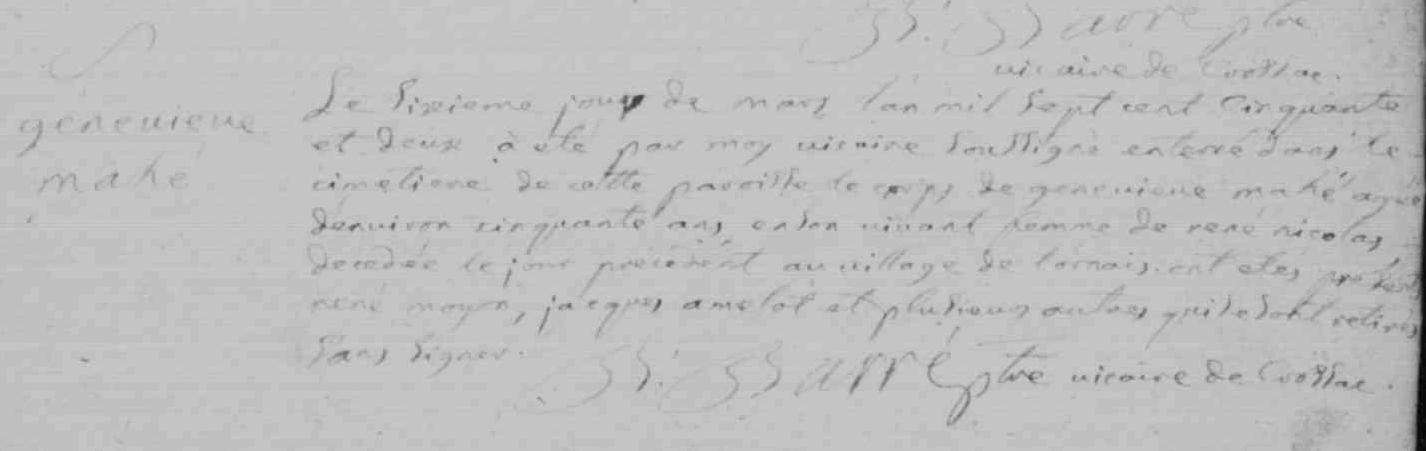 Barré ptre
vicaire de Crossac.
Le sixieme jour de mars l'an mil sept cent cinquante
genevieve
et deux à eté par moy vicaire soussigné enterré dans le
mahé
cimetiere de cette paroisse le corps de genevieve mahé agée
denviron cinquante ans, enson vivant femme de rené nicolas,
decedée le jour precedent au village de lornais. ont etes presents
rené moyon, jacques amelot et plusieurs autres qui se sont retirés
sans signer.
Barré ptre vicaire de Crossac.